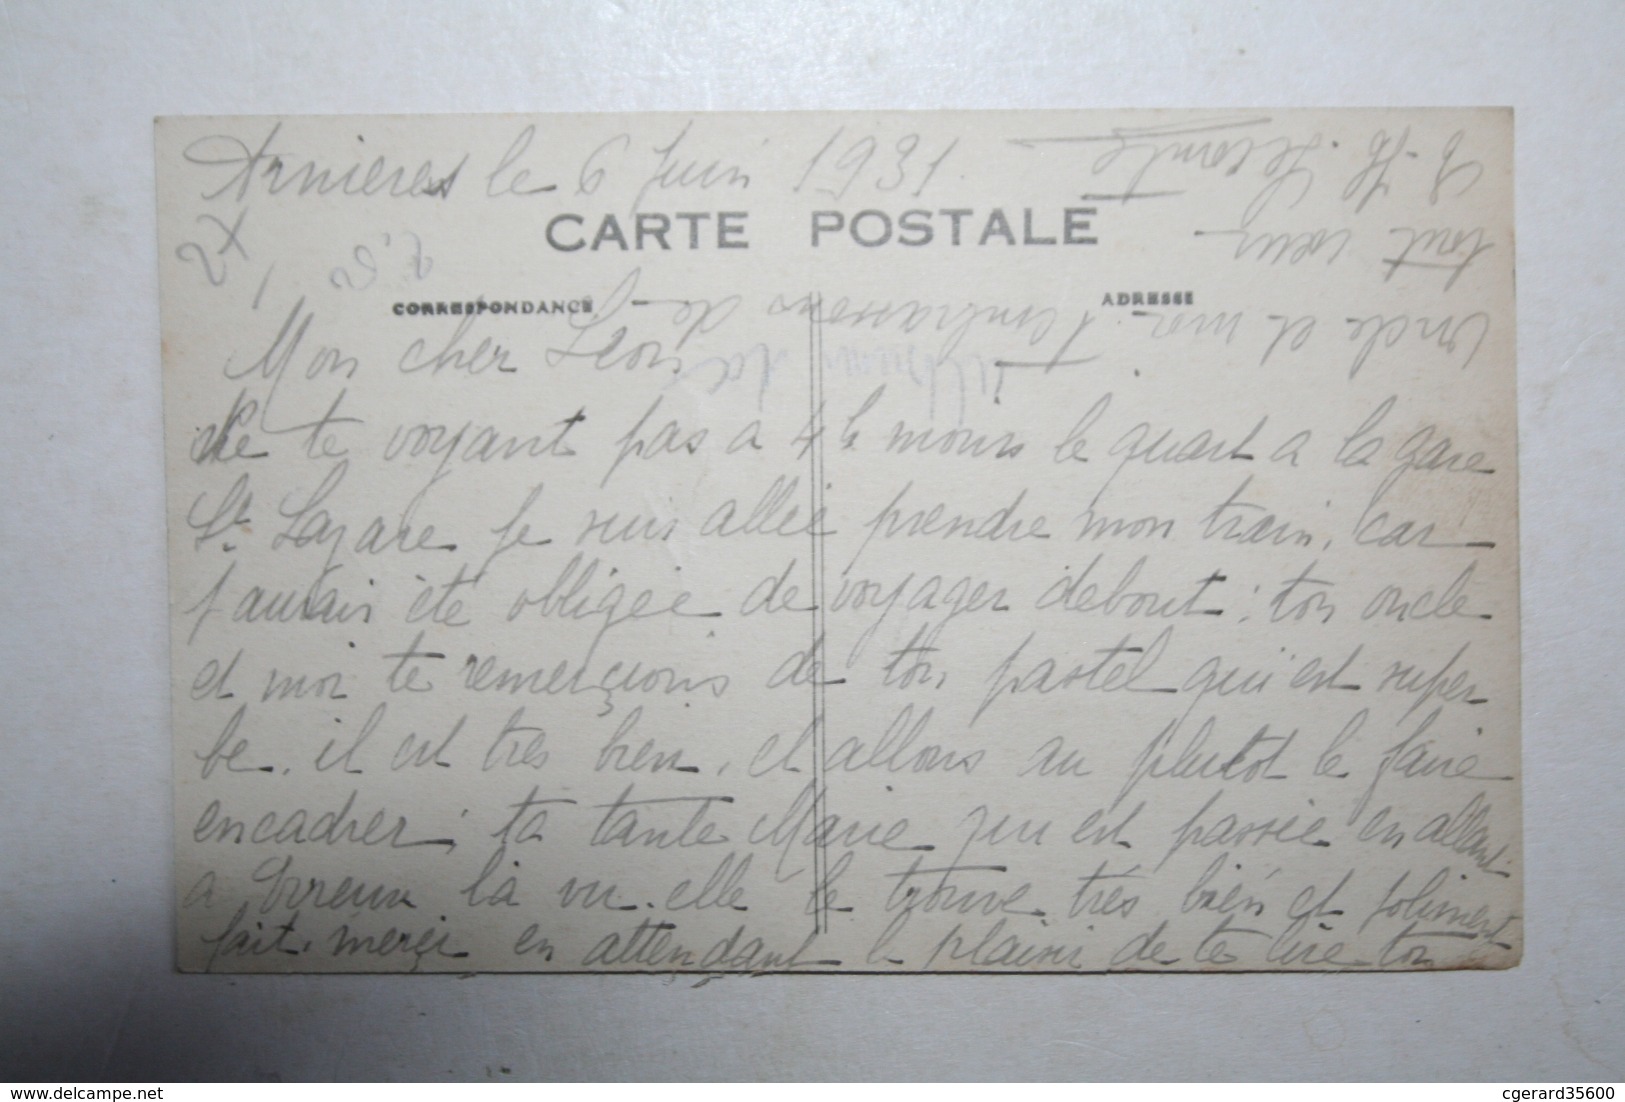 Arnieres le 6 Juin 1931
CARTE POSTALE
CORRESPONDANCE
ADRESSE
Mon cher Léon
Ne te voyant pas a 4 h moins le quart a la gare
St Lazare je suis allée prendre mon train, car
j'aurais été obligée de voyager debout; ton oncle
et moi te remerçions de ton pastel qui est super
be. il est très bien, et allons au plutot le faire
encadrer; ta tante Marie qui est passée en allant
a Evreux là vu. elle le trouve très bien et joliment
fait. merçi en attendant le plaisir de te lire ton
oncle et moi t'embrassons de
tout cœur
delcampe.net
cgerard35600